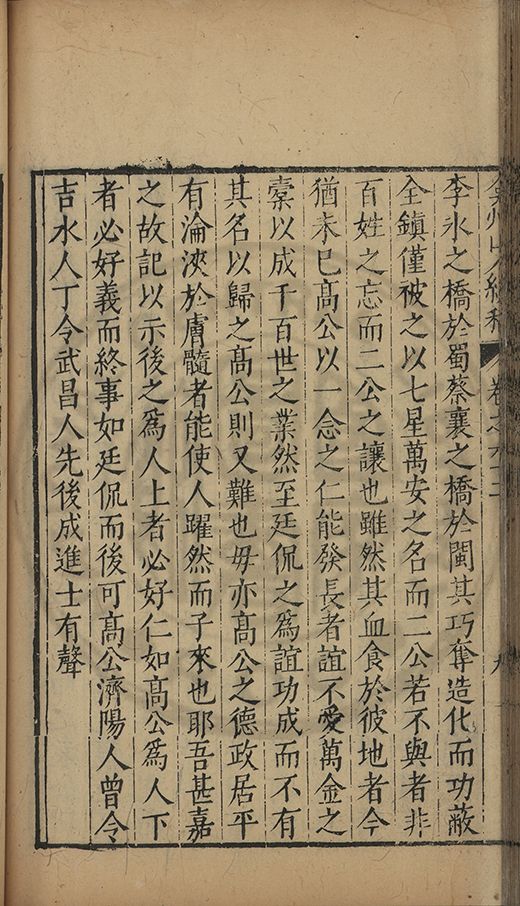 弇州山人續稿 卷之六十二 九
李氷之橋於蜀蔡襄之橋於閩其巧奪造化而功蔽
全鎮僅被之以七星萬安之名而二公若不與者非
百姓之忘而二公之讓也雖然其血食於彼地者今
猶未已高公以一念之仁能發長者誼不愛萬金之
橐以成千百世之業然至廷侃之為誼功成而不有
其名以歸之高公則又難也毋亦高公之德政居平
有淪浹於膚髓者能使人躍然而子來也耶吾甚嘉
之故記以示後之為人上者必好仁如高公為人下
者必好義而終事如廷侃而後可高公濟陽人曾令
吉水人丁令武昌人先後成進士有聲